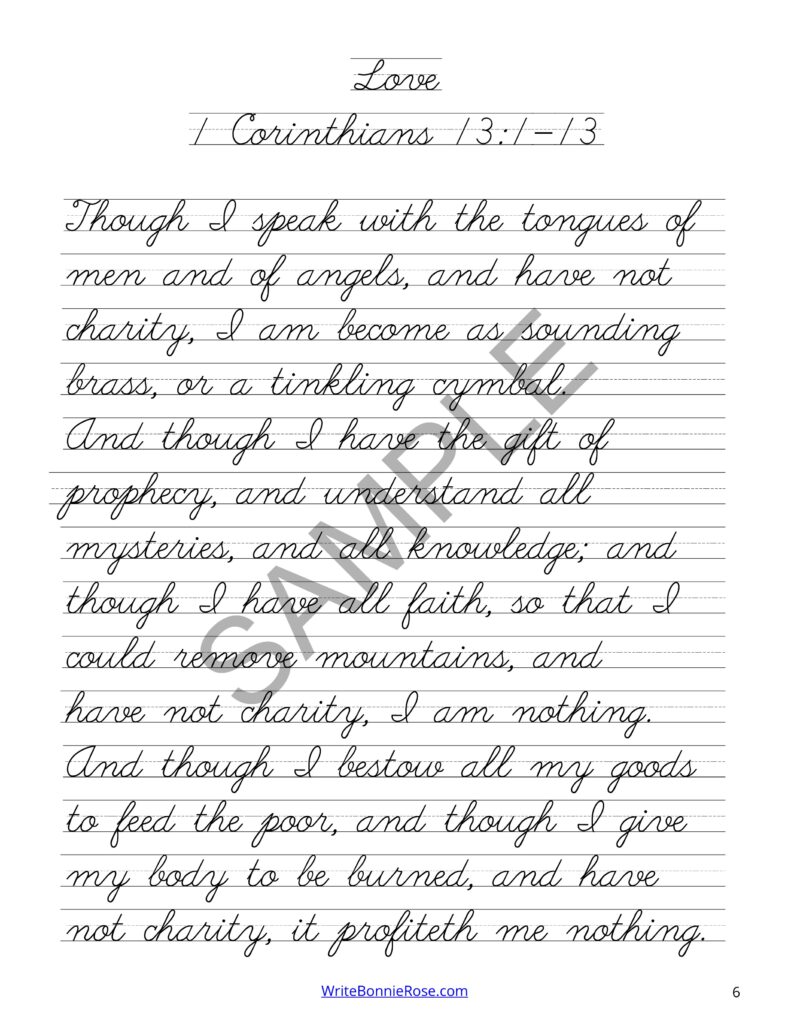 Love
1 Corinthians 13:1-13
Though I speak with the tongues of
men and of angels, and have not
charity, I am become as sounding
brass, or a tinkling cymbal.
And though I have the gift of
prophecy, and understand all
mysteries, and all knowledge; and
though I have all faith, so that I
could remove mountains, and
have not charity, I am nothing.
And though I bestow all my goods
to feed the poor, and though I give
my body to be burned, and have
not charity, it profiteth me nothing.
SAMPLE
WriteBonnieRose.com
6